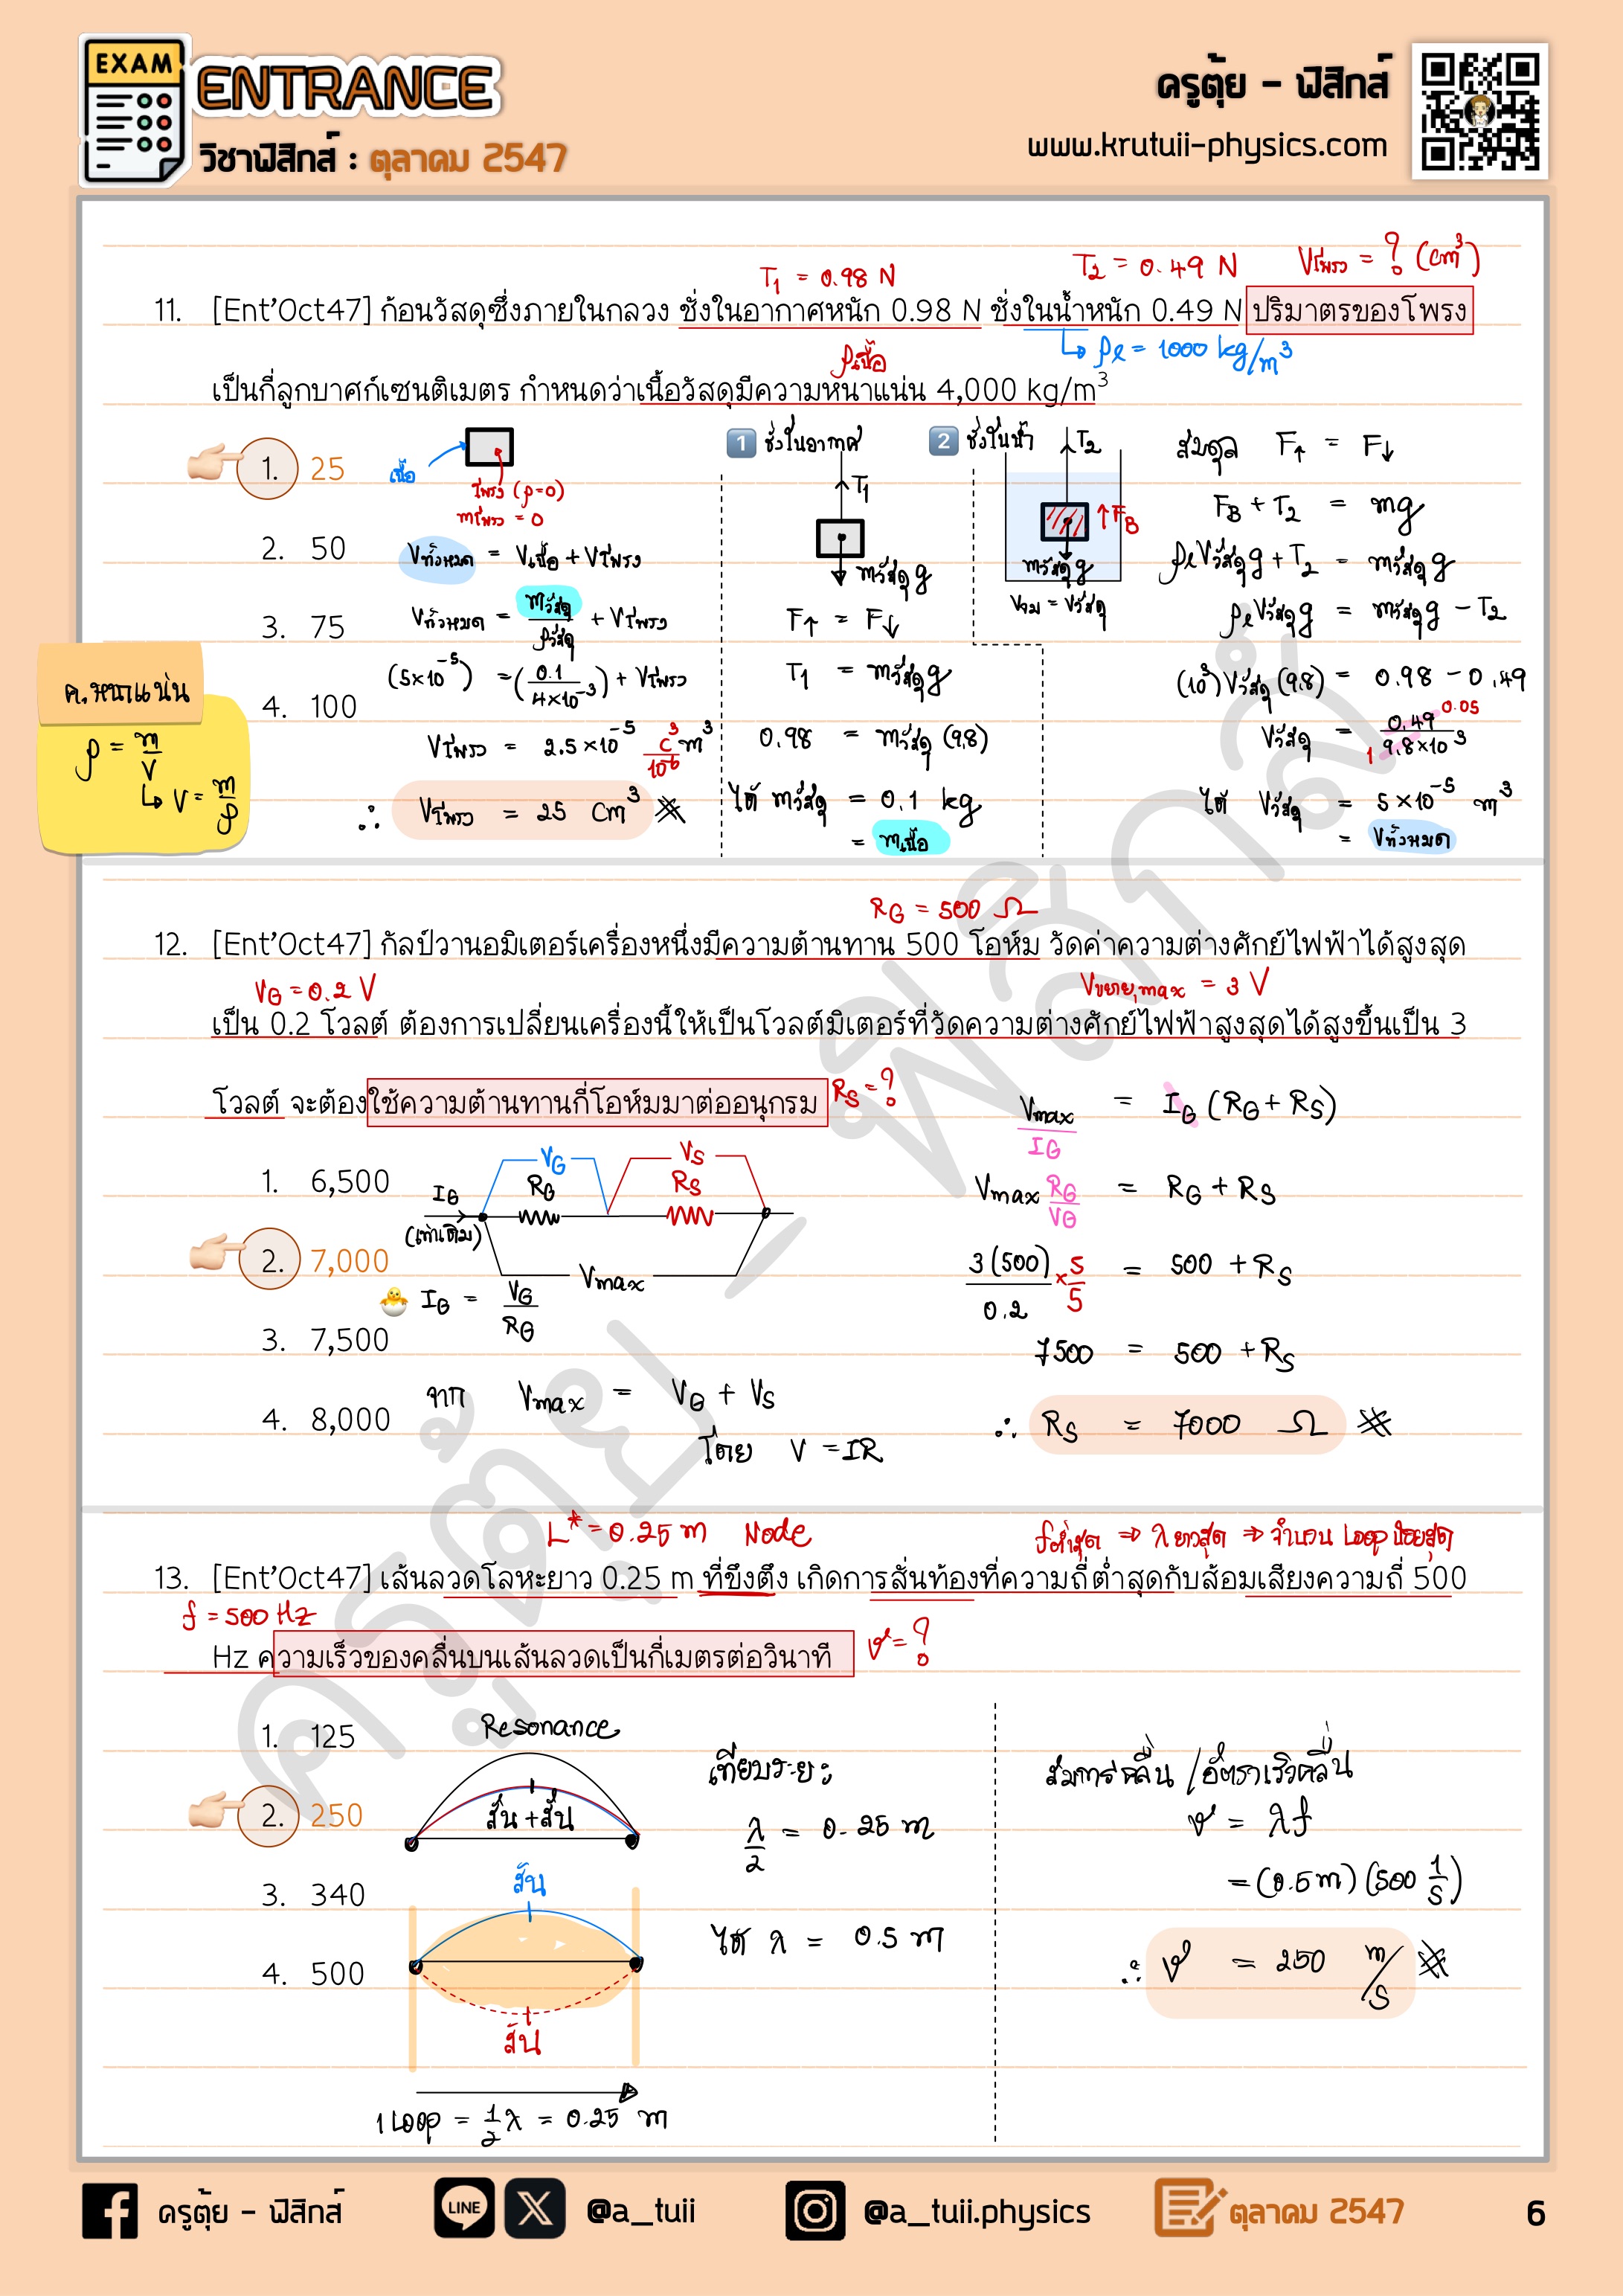 EXAM
ENTRANCE
วิชาฟิสิกส์ : ตุลาคม 2547
ครูตุ้ย - ฟิสิกส์
www.krutuii-physics.com
T₁ = 0.98 N
T₂ = 0.49 N
Vโพรง = ? (cm³)
11. [Ent'Oct47] ก้อนวัสดุซึ่งภายในกลวง ชั่งในอากาศหนัก 0.98 N ชั่งในน้ำหนัก 0.49 N ปริมาตรของโพรง
↳ ρℓ = 1000 kg/m³
ρเนื้อ
เป็นกี่ลูกบาศก์เซนติเมตร กำหนดว่าเนื้อวัสดุมีความหนาแน่น 4,000 kg/m³
1. 25
2. 50
3. 75
4. 100
เนื้อ
โพรง (ρ=0)
mโพรง = 0
Vทั้งหมด = Vเนื้อ + Vโพรง
Vทั้งหมด = mวัสดุ/ρวัสดุ + Vโพรง
(5×10⁻⁵) = (0.1/4×10⁻³) + Vโพรง
Vโพรง = 2.5×10⁻⁵ c³/10⁻⁶ m³
∴ Vโพรง = 25 cm³
ค.หนาแน่น
ρ = m/V
↳ V = m/ρ
1 ชั่งในอากาศ
T₁
mวัสดุg
F↑ = F↓
T₁ = mวัสดุg
0.98 = mวัสดุ(9.8)
ได้ mวัสดุ = 0.1 kg
= mเนื้อ
2 ชั่งในน้ำ
T₂
↑F_B
mวัสดุg
Vจม = Vวัสดุ
สมดุล F↑ = F↓
F_B + T₂ = mg
ρℓVวัสดุg + T₂ = mวัสดุg
ρℓVวัสดุg = mวัสดุg - T₂
(10³)Vวัสดุ(9.8) = 0.98 - 0.49
Vวัสดุ = 0.49/9.8×10³ 0.05 1
ได้ Vวัสดุ = 5×10⁻⁵ m³
= Vทั้งหมด
R_G = 500 Ω
12. [Ent'Oct47] กัลป์วานอมิเตอร์เครื่องหนึ่งมีความต้านทาน 500 โอห์ม วัดค่าความต่างศักย์ไฟฟ้าได้สูงสุด
V_G = 0.2 V
Vขยาย,max = 3 V
เป็น 0.2 โวลต์ ต้องการเปลี่ยนเครื่องนี้ให้เป็นโวลต์มิเตอร์ที่วัดความต่างศักย์ไฟฟ้าสูงสุดได้สูงขึ้นเป็น 3
โวลต์ จะต้องใช้ความต้านทานกี่โอห์มมาต่ออนุกรม
R_S = ?
1. 6,500
2. 7,000
3. 7,500
4. 8,000
V_G
V_S
R_G
R_S
I_G
(เท่าเดิม)
Vmax
I_G = V_G/R_G
จาก Vmax = V_G + V_S
โดย V = IR
Vmax/I_G = I_G (R_G + R_S)
Vmax R_G/V_G = R_G + R_S
3(500)/0.2 × 5/5 = 500 + R_S
7500 = 500 + R_S
∴ R_S = 7000 Ω
L* = 0.25 m Node
fต่ำสุด ⇒ λยาวสุด ⇒ จำนวน Loop น้อยสุด
13. [Ent'Oct47] เส้นลวดโลหะยาว 0.25 m ที่ขึงตึง เกิดการสั่นท้องที่ความถี่ต่ำสุดกับส้อมเสียงความถี่ 500
f = 500 Hz
Hz ความเร็วของคลื่นบนเส้นลวดเป็นกี่เมตรต่อวินาที
v = ?
1. 125
2. 250
3. 340
4. 500
Resonance
สั่น + สั่น
สั่น
สั่น
1 Loop = 1/2 λ = 0.25 m
เทียบระยะ
λ/2 = 0.25 m
ได้ λ = 0.5 m
สมการคลื่น / อัตราเร็วคลื่น
v = λf
= (0.5 m) (500 1/s)
∴ v = 250 m/s
ครูตุ้ย _ ฟิสิกส์
ครูตุ้ย - ฟิสิกส์
LINE
@a_tuii
@a_tuii.physics
ตุลาคม 2547
6